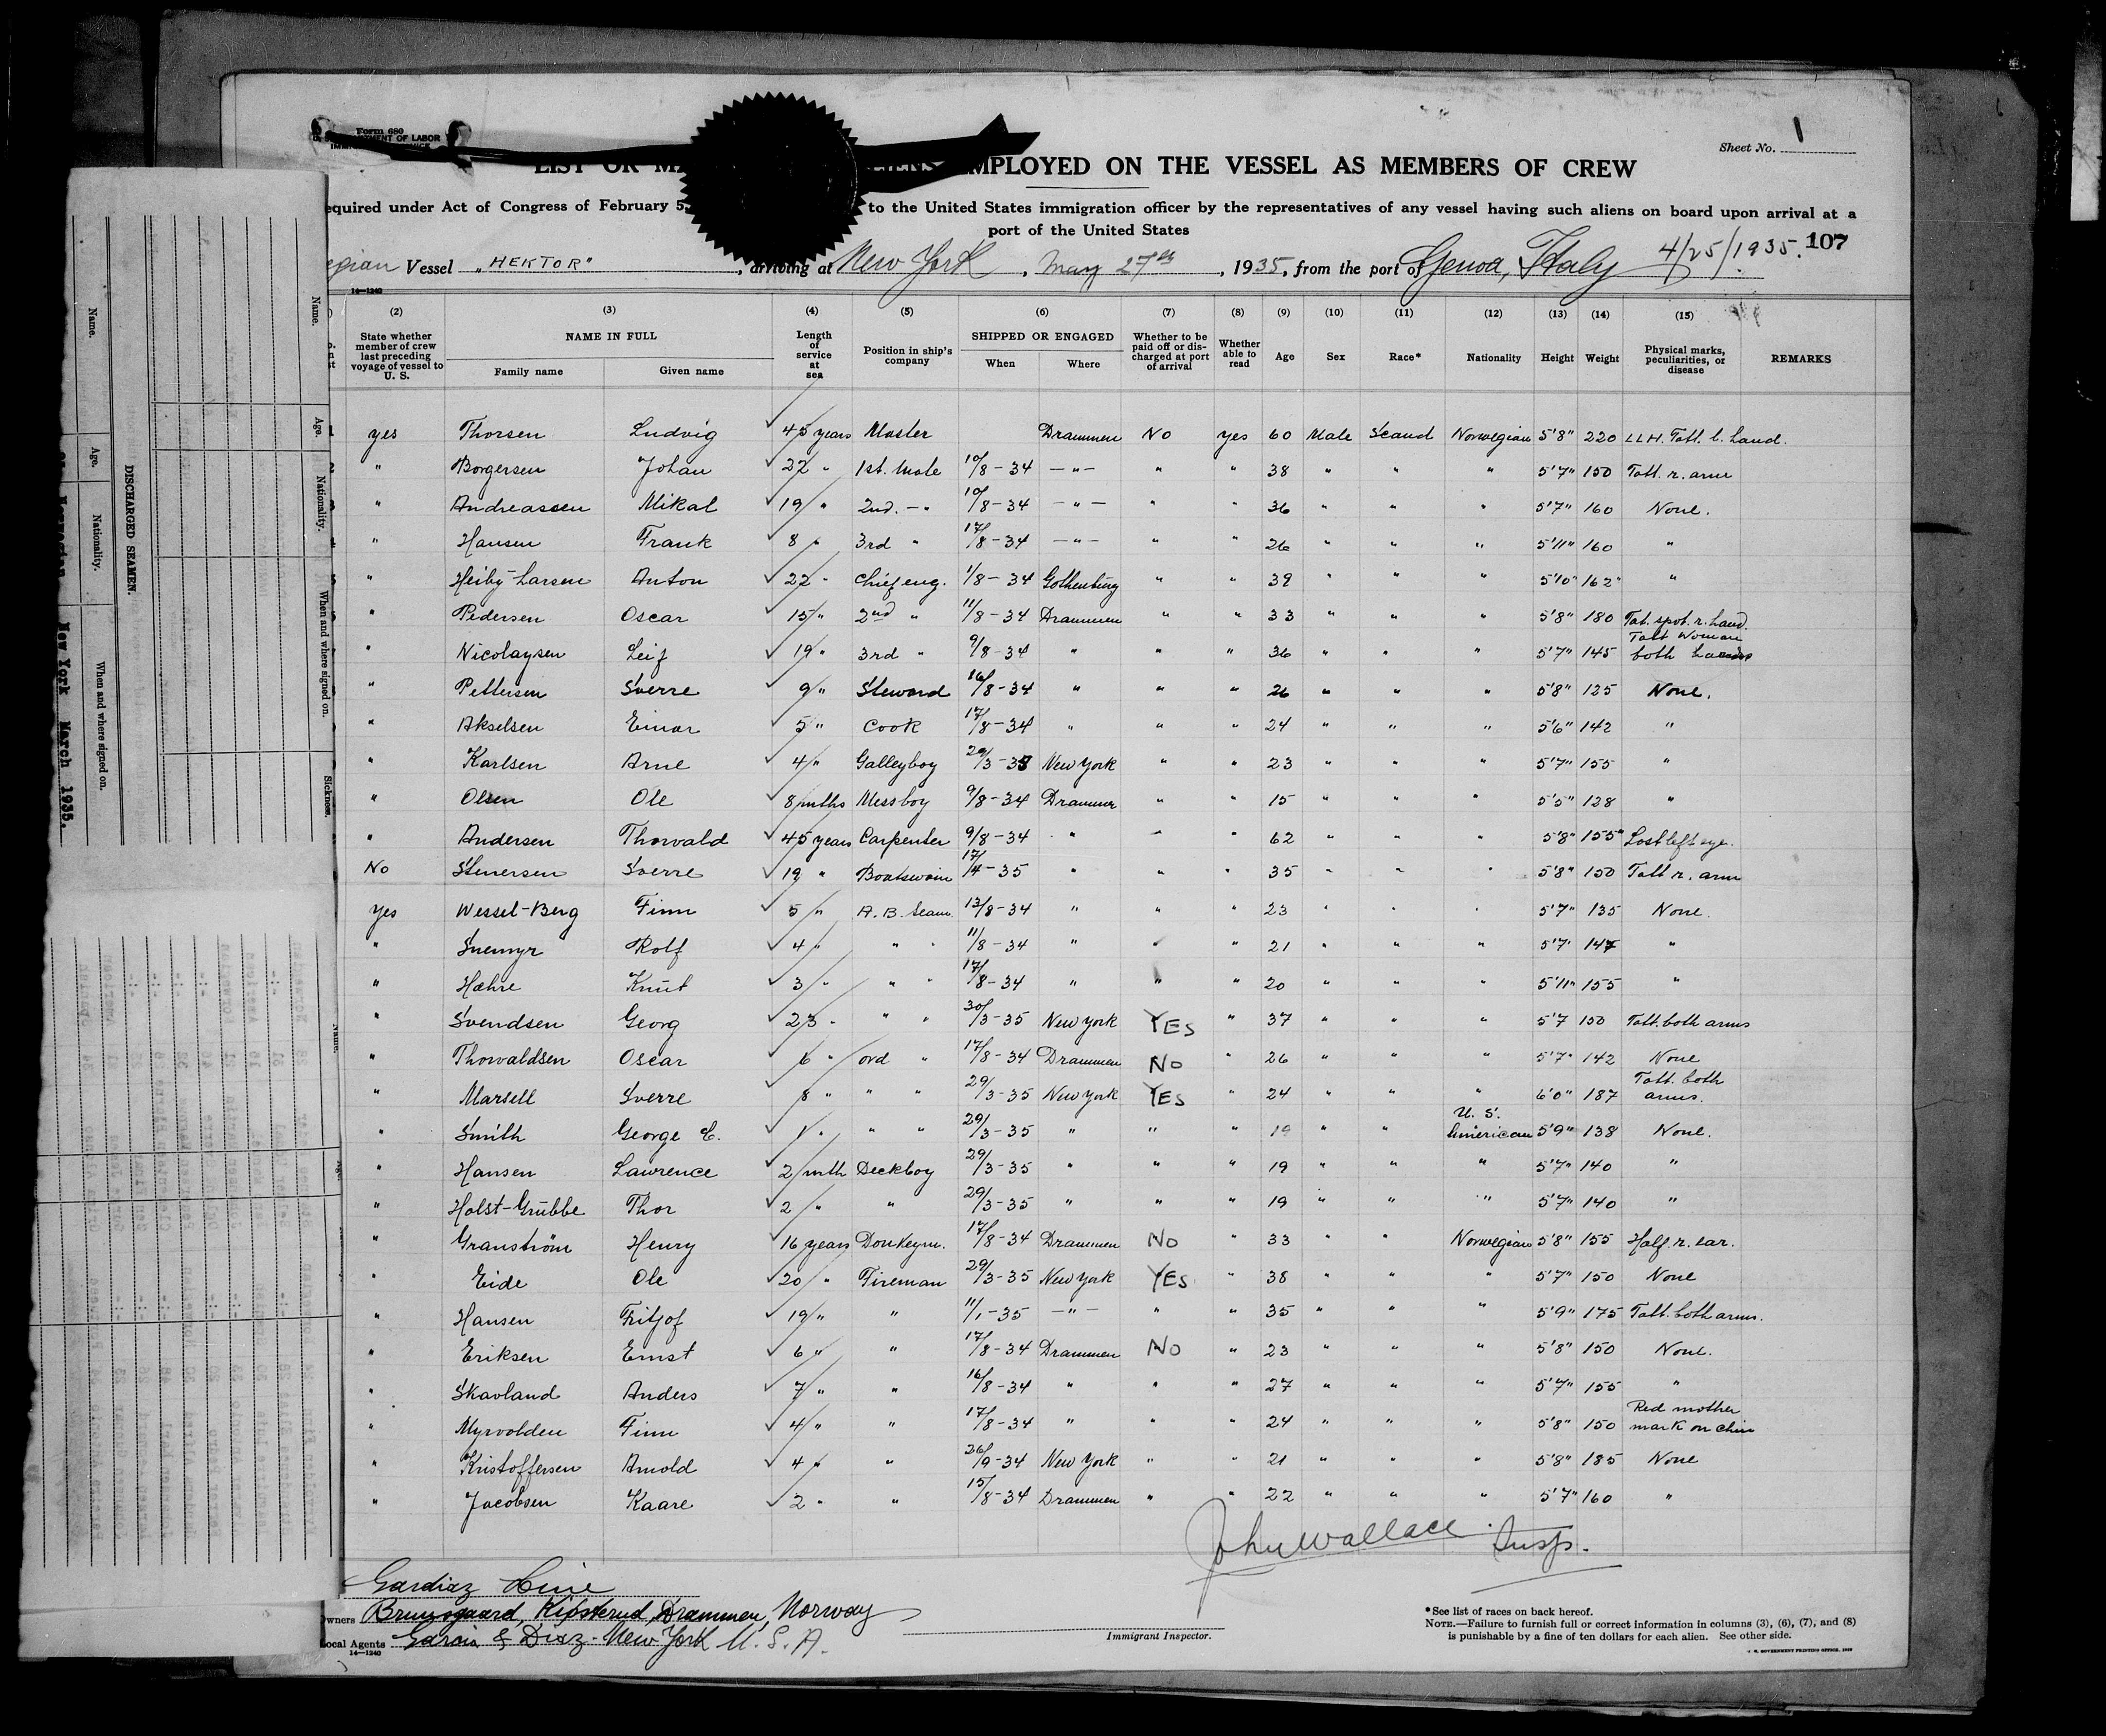 Form 680
Sheet No. 1
EMPLOYED ON THE VESSEL AS MEMBERS OF CREW
equired under Act of Congress of February 5, to the United States immigration officer by the representatives of any vessel having such aliens on board upon arrival at a
port of the United States
107
egian Vessel "HEKTOR", arriving at New York, May 27th, 1935, from the port of Genoa, Italy 4/25/1935.
14—1240
(2) (3) (4) (5) (6) (7) (8) (9) (10) (11) (12) (13) (14) (15)
State whether member of crew last preceding voyage of vessel to U. S. NAME IN FULL Family name Given name Length of service at sea Position in ship's company SHIPPED OR ENGAGED When Where Whether to be paid off or discharged at port of arrival Whether able to read Age Sex Race* Nationality Height Weight Physical marks, peculiarities, or disease REMARKS
yes Thorsen Ludvig 45 years Master Drammen No yes 60 Male Scand Norwegian 5'8" 220 LLH. Tatt. l. hand.
" Borgersen Johan 22 " 1st. Mate 10/8-34 -"- " " 38 " " " 5'7" 150 Tatt. r. arm
" Andreassen Mikal 19 " 2nd. -" 10/8-34 -"- " " 36 " " " 5'7" 160 None.
" Hansen Frank 8 " 3rd " 17/8-34 -"- " " 26 " " " 5'11" 160 "
" Heiby-Larsen Anton 22 " Chief eng. 1/8-34 Gothenburg " " 39 " " " 5'10" 162 "
" Pedersen Oscar 15 " 2nd " 11/8-34 Drammen " " 33 " " " 5'8" 180 Tat. spot. r. hand.
" Nicolaysen Leif 19 " 3rd " 9/8-34 " " " 36 " " " 5'7" 145 Tatt Woman both hands
" Pettersen Sverre 9 " Steward 16/8-34 " " " 26 " " " 5'8" 135 None.
" Akselsen Einar 5 " Cook 17/8-34 " " " 24 " " " 5'6" 142 "
" Karlsen Arne 4 " Galleyboy 29/3-35 New York " " 23 " " " 5'7" 155 "
" Olsen Ole 8 mths Messboy 9/8-34 Drammen " " 15 " " " 5'5" 128 "
" Andersen Thorvald 45 years Carpenter 9/8-34 " " " 62 " " " 5'8" 155 Lost left eye.
No Stenersen Sverre 19 " Boatswain 17/4-35 " " " 35 " " " 5'8" 150 Tatt r. arm
Yes Wessel-Berg Finn 5 " A.B. Seam. 13/8-34 " " " 23 " " " 5'7" 135 None.
" Snemyr Rolf 4 " " " 11/8-34 " " " 21 " " " 5'7" 147 "
" Hæhre Knut 3 " " " 17/8-34 " " " 20 " " " 5'11" 155 "
" Svendsen Georg 23 " " " 30/3-35 New York YES " 37 " " " 5'7 150 Tatt. both arms
" Thorvaldsen Oscar 6 " ord " 17/8-34 Drammen No " 26 " " " 5'7" 142 None
" Marsell Sverre 8 " " " 29/3-35 New York YES " 24 " " " 6'0" 187 Tatt. both arms.
" Smith George E. 1 " " " 29/3-35 " " " 19 " " U. S. American 5'9" 138 None.
" Hansen Lawrence 2 mth Deckboy 29/3-35 " " " 19 " " " 5'7" 140 "
" Holst-Grubbe Thor 2 " " 29/3-35 " " " 19 " " " 5'7" 140 "
" Granström Henry 16 years Donkeym. 17/8-34 Drammen No " 33 " " Norwegian 5'8" 155 Half. r. ear.
" Eide Ole 20 " Fireman 29/3-35 New York YES " 38 " " " 5'7" 150 None
" Hansen Fritjof 19 " " 11/1-35 -"- " " 35 " " " 5'9" 175 Tatt. both arms.
" Eriksen Ernst 6 " " 17/8-34 Drammen No " 23 " " " 5'8" 150 None.
" Skavland Anders 7 " " 16/8-34 " " " 27 " " " 5'7" 155 "
" Myrvolden Finn 4 " " 17/8-34 " " " 24 " " " 5'8" 150 Red mother mark on chin
" Kristoffersen Arnold 4 " " 26/9-34 New York " " 21 " " " 5'8" 185 None
" Jacobsen Kaare 2 " " 15/8-34 Drammen " " 22 " " " 5'7" 160 "
John Wallace Insp.
Gardiaz Line
Owners Bruusgaard, Kiøsterud, Drammen, Norway
Local Agents Garcia & Diaz - New York U. S. A.
14—1240
Immigrant Inspector.
*See list of races on back hereof.
NOTE.—Failure to furnish full or correct information in columns (3), (6), (7), and (8)
is punishable by a fine of ten dollars for each alien. See other side.
U. S. GOVERNMENT PRINTING OFFICE
DISCHARGED SEAMEN.
Name. Age. Nationality. When and where signed on.
Name. Age. Nationality. When and where signed on. Sickness.
New York March 1935.